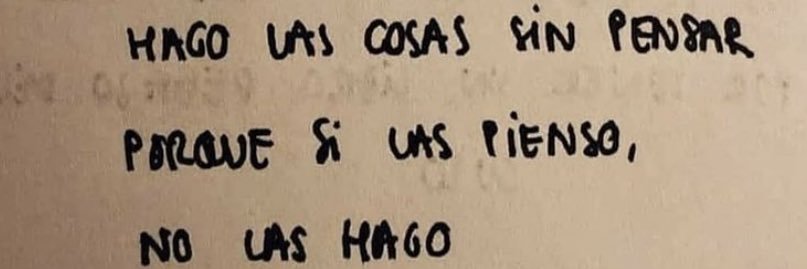 HAGO LAS COSAS SIN PENSAR
PORQUE SI LAS PIENSO,
NO LAS HAGO